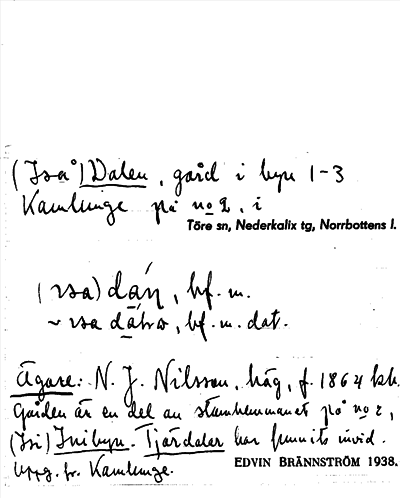 (Iså) Dalen, gård i byn 1-3
Kamlunge på no 2, i
Töre sn, Nederkalix tg, Norrbottens l.
dáṇ, bf. m.
bf. m. dat.
Ägare: N. J. Nilsson, häg, f. 1864
Gården är en del av stamhemmanet på no 2,
Inibyn. Tjärdalar har funnits invid.
Uppg. fr. Kamlunge.
EDVIN BRÄNNSTRÖM 1938.